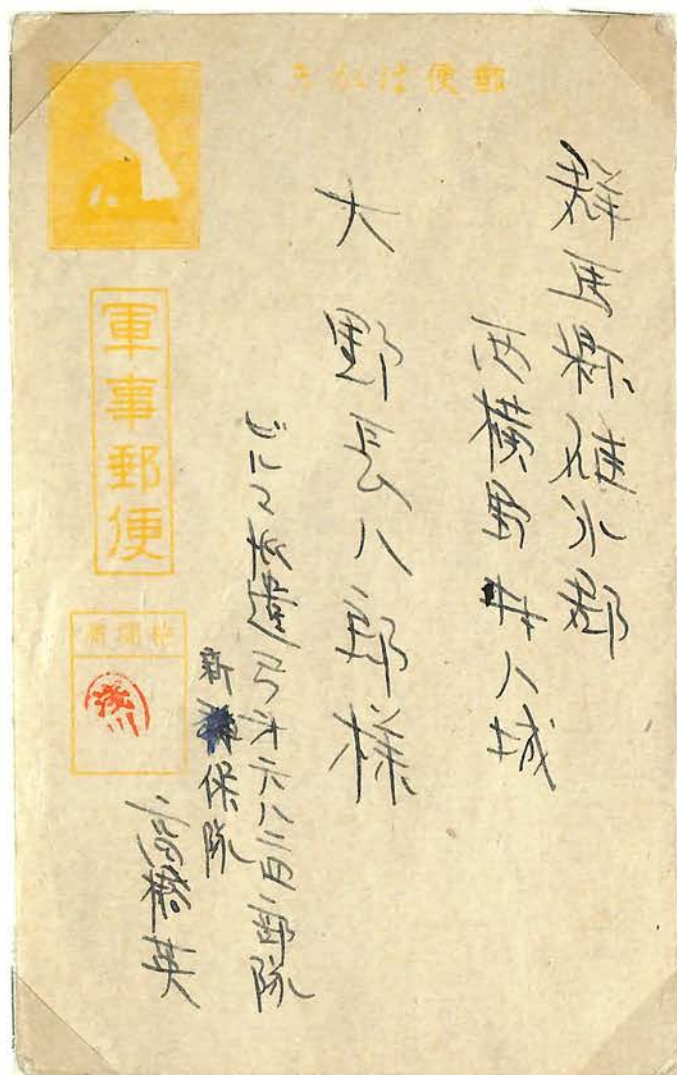 郵便はがき
群馬縣碓氷郡
西横野村八城
大野長八郎様
軍事郵便
ビルマ派遣弓第六八二〇部隊
新保隊
高橋英
検閲済
浅川